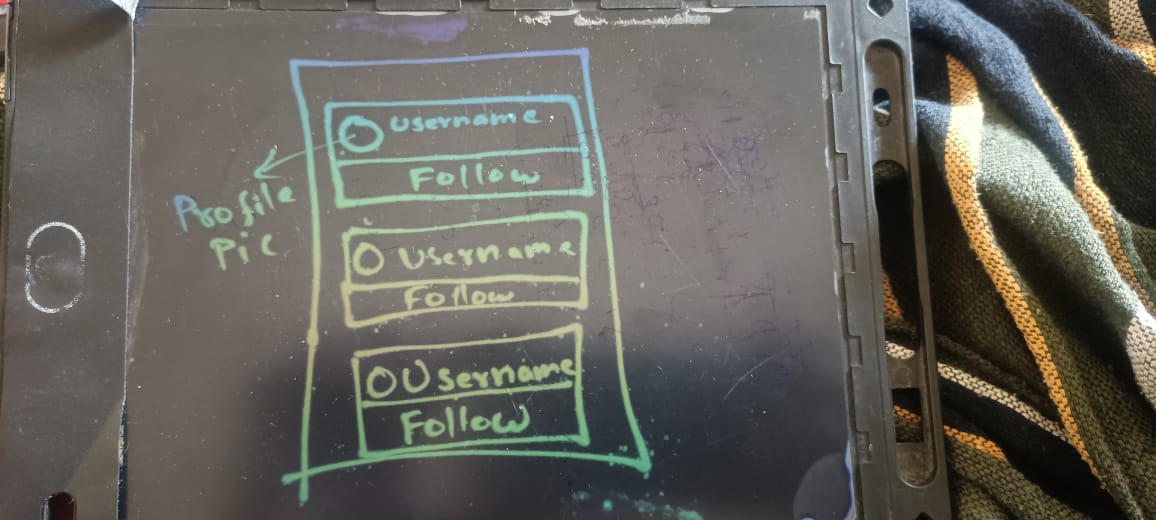 Username
Follow
Profile
Pic
Username
Follow
Username
Follow